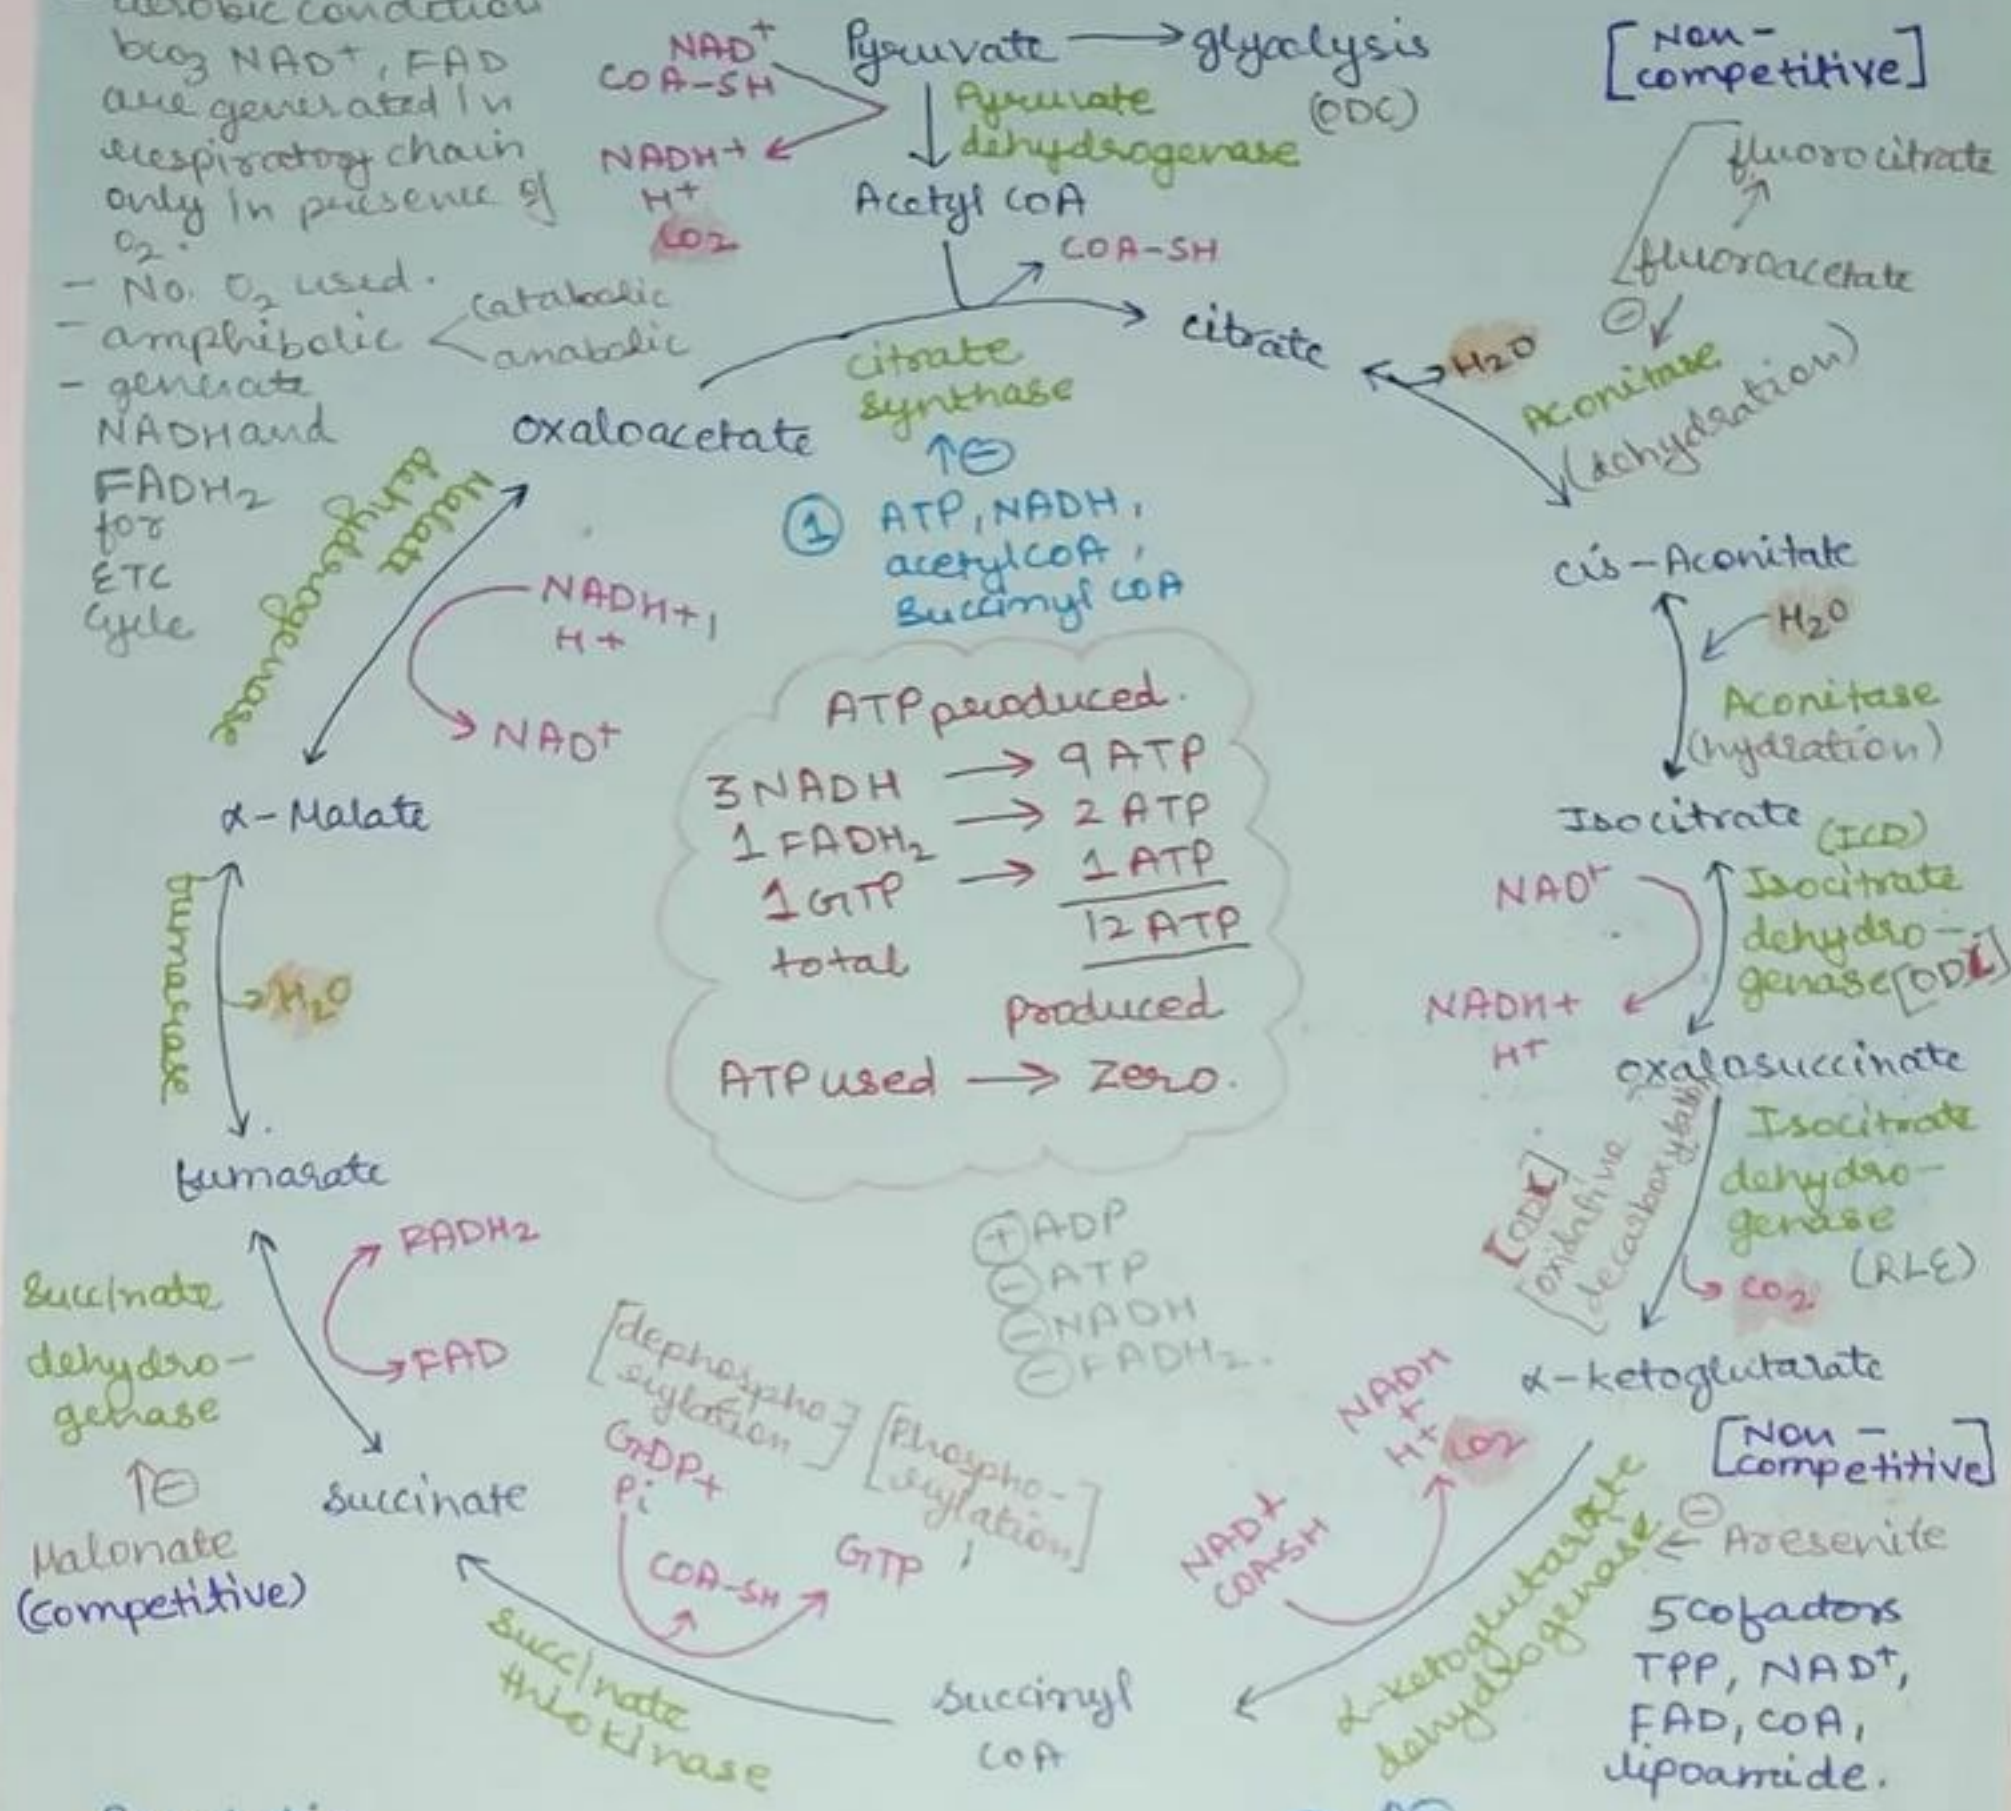 aerobic condition
bcoz NAD+, FAD
are generated in
respiratory chain
only in presence of
O2.
- No. O2 used.
- amphibolic
catabolic
anabolic
- generate
NADH and
FADH2
for
ETC
Cycle
NAD+
COA-SH
NADH+
H+
CO2
Pyruvate → glycolysis
(ODC)
Pyruvate
dehydrogenase
Acetyl COA
COA-SH
citrate
citrate
synthase
oxaloacetate
↑⊖
① ATP, NADH,
acetylCOA,
Succinyl COA
[Non-
competitive]
fluorocitrate
fluoroacetate
⊖
H2O
Aconitase
(dehydration)
cis-Aconitate
H2O
Aconitase
(hydration)
Isocitrate
(ICD)
Isocitrate
dehydro-
genase
NAD+
NADH+
H+
oxalosuccinate
Isocitrate
dehydro-
genase
(RLE)
CO2
oxidative
decarboxylation
α-ketoglutarate
[Non-
competitive]
⊖
Aresenite
5 cofactors
TPP, NAD+,
FAD, COA,
lipoamide.
α-ketoglutarate
dehydrogenase
NADH
+
H+
CO2
NAD+
COA-SH
succinyl
COA
succinate
thiokinase
[dephospho-
rylation]
GDP+
Pi
COA-SH
[Phospho-
rylation]
GTP
succinate
Succinate
dehydro-
genase
↑⊖
Malonate
(competitive)
FADH2
FAD
fumarate
fumarase
H2O
α-Malate
Malate
dehydrogenase
NADH+
H+
NAD+
ATP produced.
3 NADH → 9 ATP
1 FADH2 → 2 ATP
1 GTP → 1 ATP
total 12 ATP
produced
ATP used → zero.
⊕ ADP
⊖ ATP
⊖ NADH
⊖ FADH2.